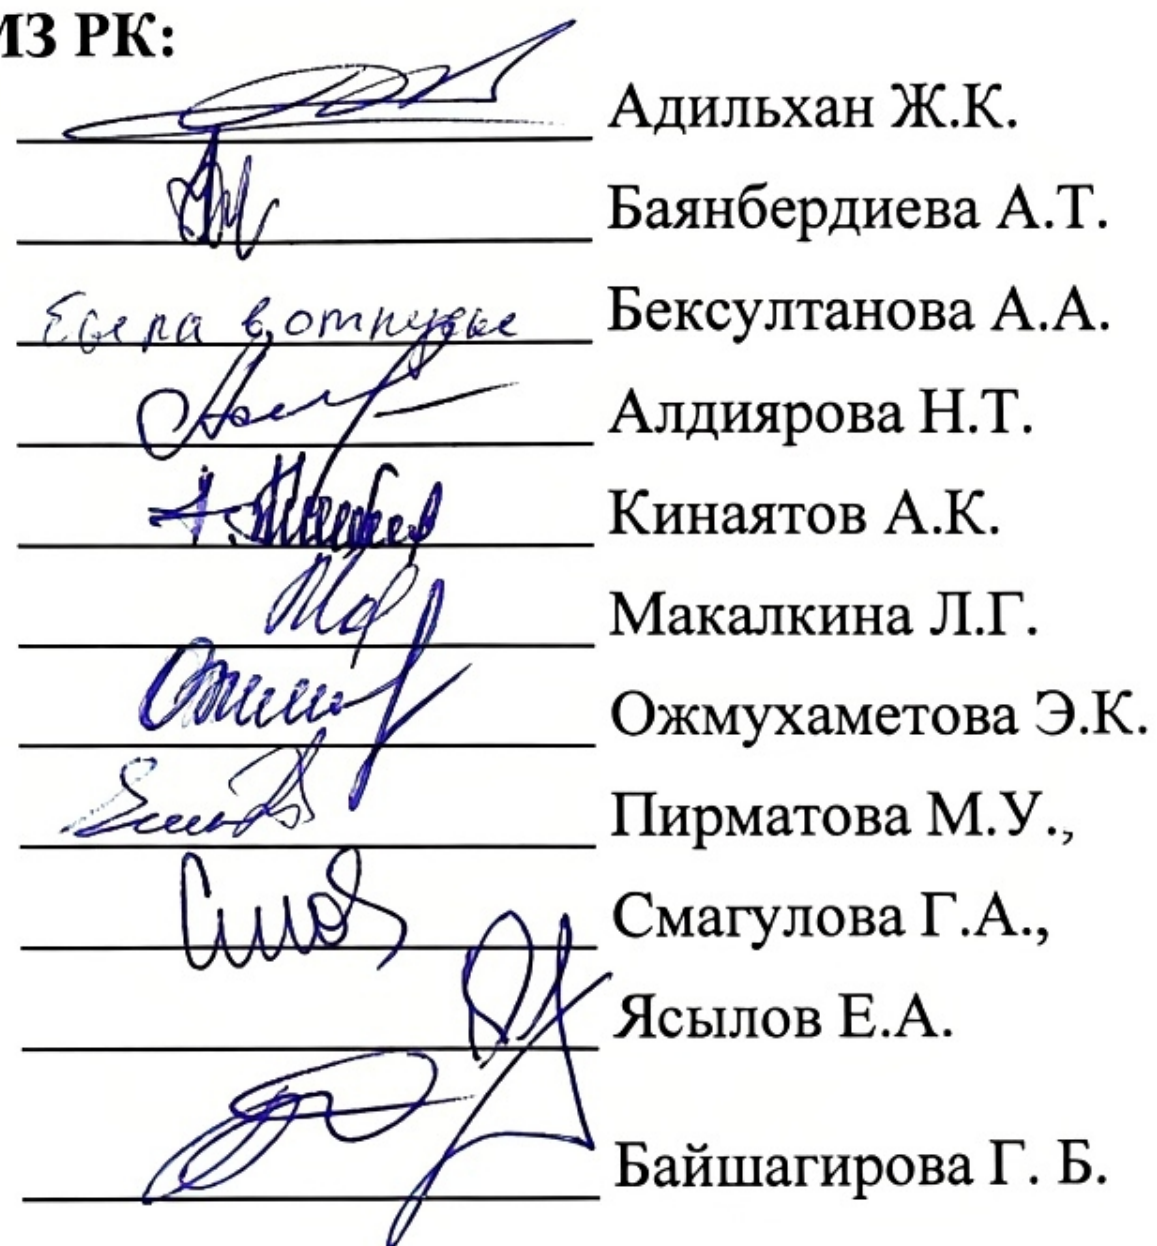 МЗ РК:
Адильхан Ж.К.
Баянбердиева А.Т.
была в отпуске Бексултанова А.А.
Алдиярова Н.Т.
Кинаятов А.К.
Макалкина Л.Г.
Ожмухаметова Э.К.
Пирматова М.У.,
Смагулова Г.А.,
Ясылов Е.А.
Байшагирова Г. Б.